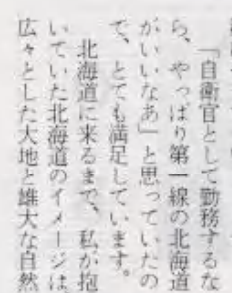 「自衛官として勤務するな
ら、やっぱり第一線の北海道
がいいなあ」と思っていたの
で、とても満足しています。
北海道に来るまで、私が抱
いていた北海道のイメージは
広々とした大地と雄大な自然